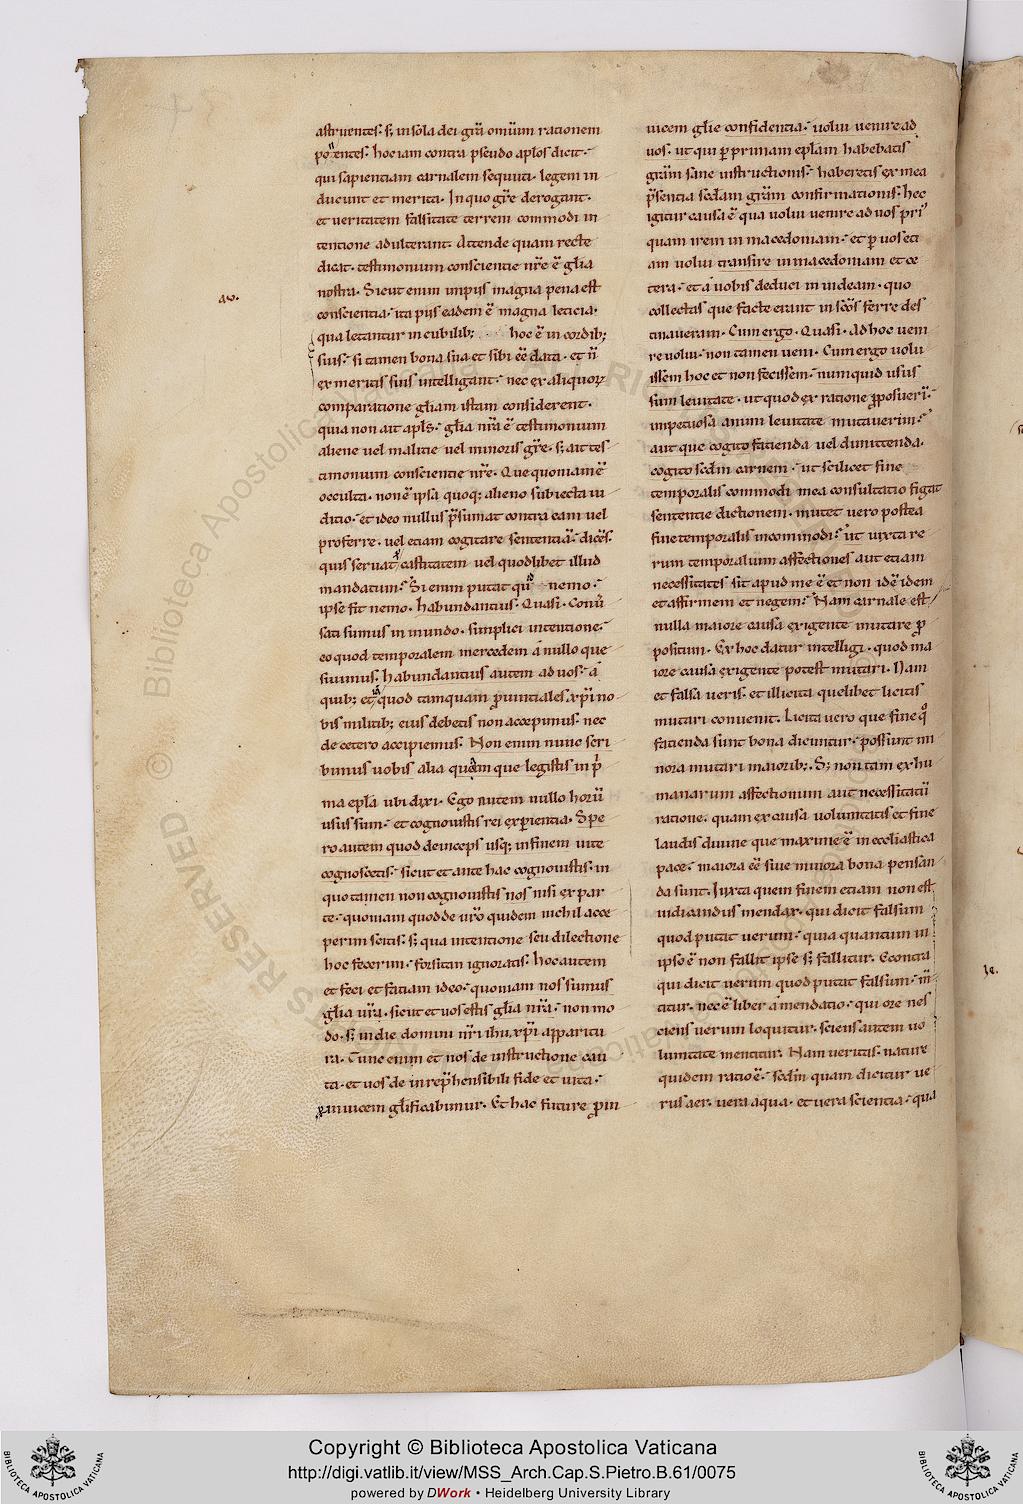 astruentes. s; in sola dei gr̃a omnium rationem
ponentes. hoc iam contra pseudo apłos dicit.
qui sapientiam carnalem sequuti. legem in
ducunt et merita. In quo gr̃e derogant.
et veritatem falsitate terreni commodi in
tentione adulterant. Attende quam recte
dicat. testimonium conscientie nr̃e ē gł̃ia
nostra. Sicut enim impijs magna pena est
conscientia. ita pijs eadem ē magna leticia.
qua letantur in cubilib; hoc ē in cordib;
suis. si tamen bona sua et sibi eē data. et n̄
ex meritis suis intelligant. nec ex aliquorꝝ
comparatione gł̃iam istam considerent.
quia non ait apł̃s. gł̃ia nr̃a ē testimonium
aliene vel malitie vel minoris gr̃e. s; ait tes
timonium conscientie nr̃e. Que quoniam ē
occulta. non ē ipsa quoq; alieno subiecta iu
ditio. et ideo nullus p̄sumat contra eam vel
proferre. vel etiam cogitare sententiā. dicēs.
quis seruat castitatem vel quodlibet illud
mandatum. Si enim putat nemo.
ipse fit nemo. habundantius. Quasi. Conū
sati sumus in mundo. simplici intentione.
eo quod temporalem mercedem a nullo que
siuimus. habundantius autem ad uos. a
quib; et quod tamquam p̄uintiales. xp̃i no
bis militib; eius debetis non accepimus. nec
de cetero accipiemus. Non enim nunc scri
bimus uobis alia quam que legistis in p̄
ma epl̃a ubi dixi. Ego autem nullo horū
usus sum. et cognouistis rei exꝑientia. Spe
ro autem quod deinceps usq; in finem uite
cognoscetis. sicut et ante hac cognouistis. in
quo tamen non cognouistis nos nisi ex par
te. quoniam quod de ur̃o quidem nichil acce
perim scitis. s; qua intentione seu dilectione
hoc fecerim. forsitan ignoratis. hoc autem
et feci et fatiam ideo. quoniam nos sumus
gł̃ia ur̃a. sicut et uos estis gł̃ia nr̃a. non mo
do. s; in die domini nr̃i ihu xp̃i apparitu
ra. Tunc enim et nos de instructione cau
ta. et uos de inrep̄hensibili fide et uita.
inuicem glificabimur. Et hac future ꝓin
av.
uicem glie confidentia. uolui uenire ad
uos. ut qui ꝑ primam epl̃am habebatis
gr̃am sane instructionis. haberetis ex mea
p̄sentia scdam gr̃am confirmationis. hec
igitur causa ē qua uolui uenire ad uos pri
quam irem in macedoniam. et ꝑ uos eti
am uolui transire in macedoniam et ce
tera. et a uobis deduci in iudeam. quo
collectas que facte erant in scōs ferre des
tinaueram. Cum ergo. Quasi. Ad hoc ueni
re uolui. non tamen ueni. Cum ergo uolu
issem hoc et non fecissem. numquid usus
sum leuitate. ut quod ex ratione ꝓposueri.
impetuosa animi leuitate mutauerim.
aut que cogito facienda uel dimittenda.
cogito scdm carnem. ut scilicet fine
temporalis commodi mea consultatio figat
sententie dictionem. mutet uero postea
fine temporalis incommodi. ut iuxta re
rum temporalium affectiones aut etiam
necessitates sit apud me ē et non idē idem
et affirmem et negem. Nam carnale est
nulla maiore causa exigente mutare ꝓ
positum. Ex hoc datur intelligi. quod ma
iore causa exigente potest mutari. Nam
et falsa ueris. et illicita quelibet licitis
mutari conuenit. Licita uero que sine qͦ
facienda sunt bona dicuntur. possunt mi
nora mutari maiorib;. S; non tam ex hu
manarum affectionum aut necessitatū
ratione. quam ex causa uoluntatis et fine
laudis diuine que maxime ē in eccliastica
pace. maiora eē siue minora bona pensan
da sunt. Iuxta quem finem etiam non est
iudicandus mendax. qui dicit falsum
quod putat uerum. quia quantum in
ipso ē non fallit ipse s; fallitur. Econtra
qui dicit uerum quod putat falsum. m̄
titur. nec ē liber a mendatio. qui ore nes
ciens uerum loquitur. sciens autem uo
luntate mentitur. Nam ueritas. nature
quidem ratio ē. scdm quam dicitur ue
rus aer. uera aqua. et uera scientia. qua
Copyright © Biblioteca Apostolica Vaticana
http://digi.vatlib.it/view/MSS_Arch.Cap.S.Pietro.B.61/0075
powered by DWork • Heidelberg University Library